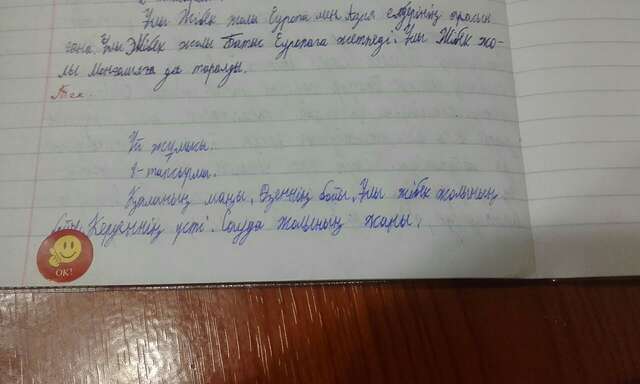 Ұлы Жібек жолы Еуропа мен Азия елдерінің арасын
ғана. Ұлы Жібек жолы Батыс Еуропаға жетпеді. Ұлы Жібек жо-
лы Монғолияға да таралды.
Үй жұмысы.
1-тапсырма.
Қаланың маңы. Өзеннің бойы. Ұлы жібек жолының
Керуеннің үсті. Сауда жолының жаны.
OK!